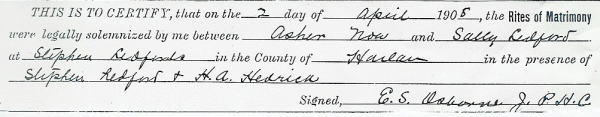 THIS IS TO CERTIFY, that on the 2 day of April 1905, the Rites of Matrimony
were legally solemnized by me between Asher Noe and Sally Ledford
at Stephen Ledfords in the County of Harlan in the presence of
Stephen Ledford & H.A. Hedrick
Signed, E. S. Osborne J. P. H. C